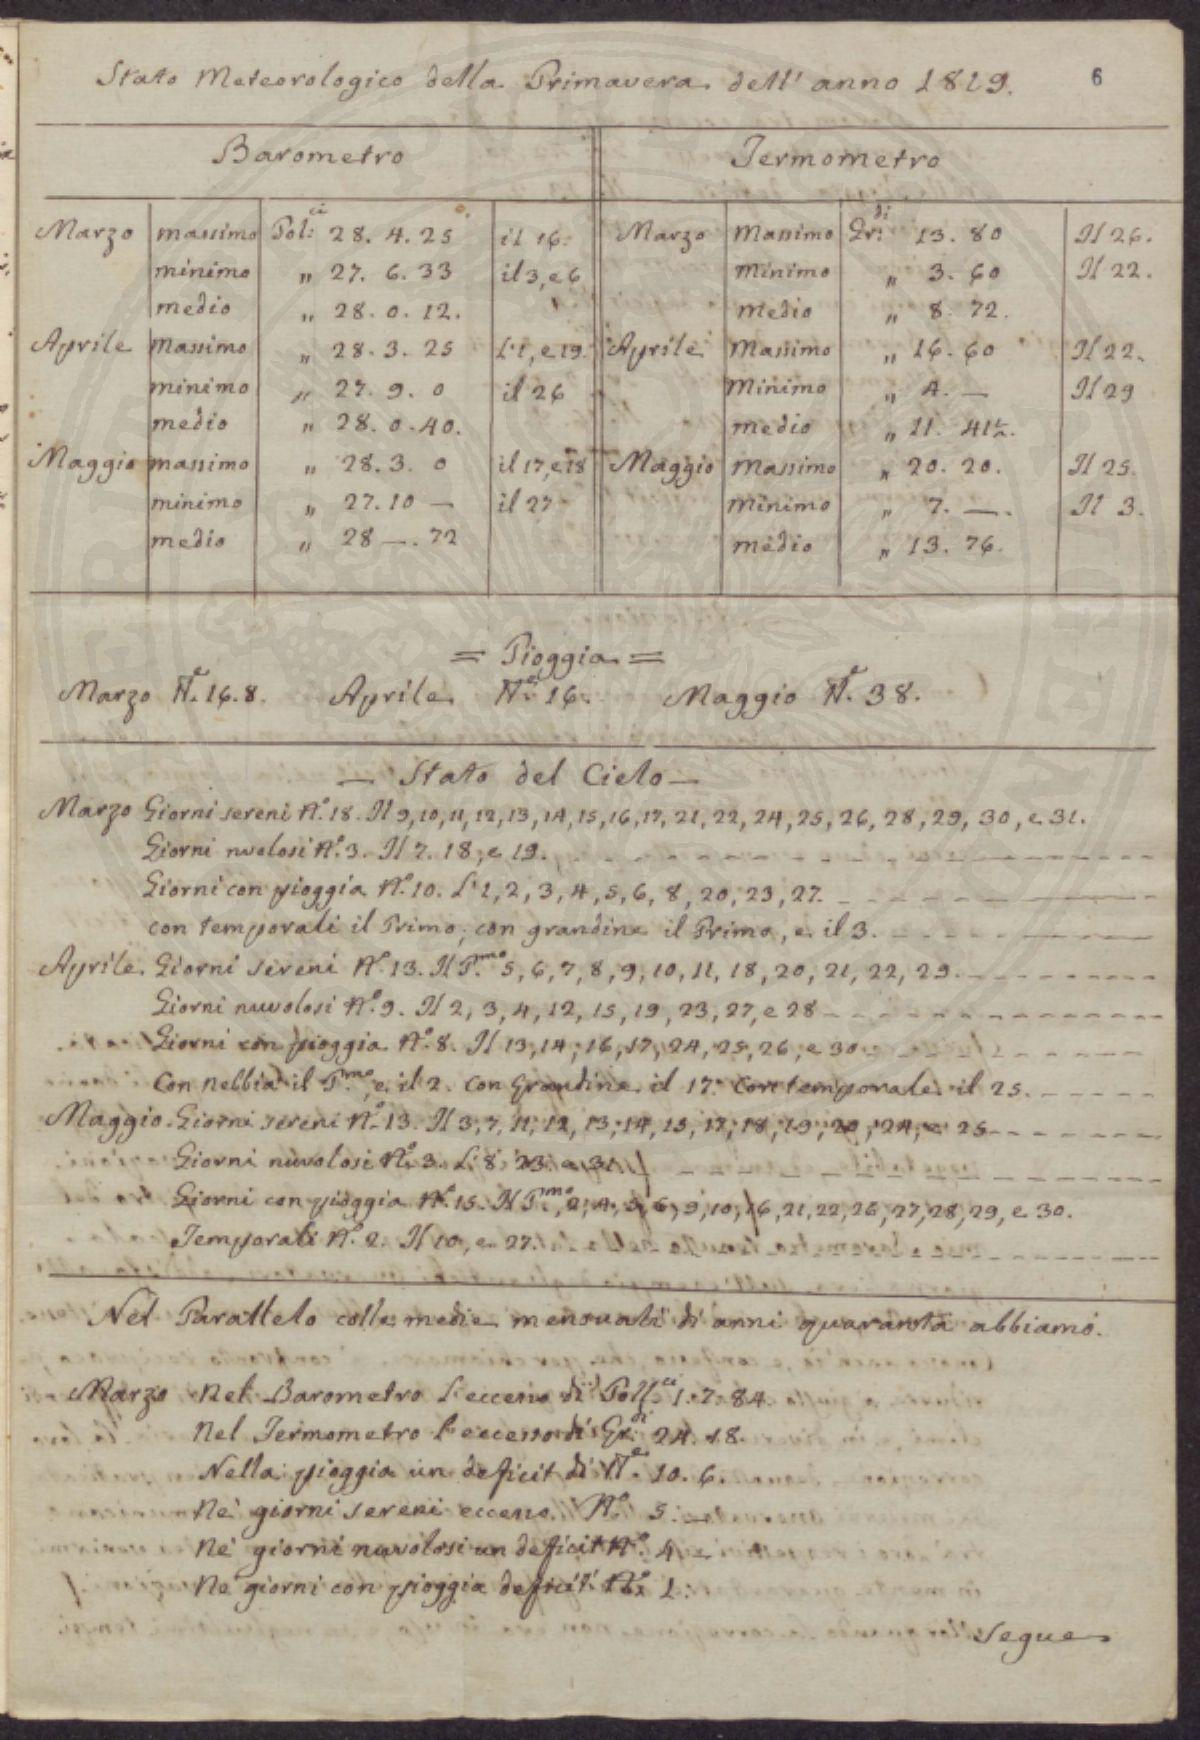 Stato Meteorologico della Primavera dell' anno 1819. 6
Barometro Termometro
Marzo massimo Pol:ci 28. 4. 25 il 16. Marzo Massimo Gr:di 13. 80 Il 26.
minimo „ 27. 6. 33 il 3, e 6 Minimo „ 3. 60 Il 22.
medio „ 28. 0. 12. „ medio „ 8. 72.
Aprile Massimo „ 28. 3. 25 L'1, e 19. Aprile Massimo „ 16. 60 Il 22.
minimo „ 27. 9. 0 il 26 Minimo „ 4. — Il 29
medio „ 28. 0. 40. medio „ 11. 41½.
Maggio massimo „ 28. 3. 0 il 17, e 18 Maggio Massimo „ 20. 20. Il 25.
minimo „ 27. 10 — il 27 Minimo „ 7. —. Il 3.
medio „ 28 —. 72 medio „ 13. 76.
= Pioggia =
Marzo N.e 16. 8. Aprile N.e 16. Maggio N.e 38.
— Stato del Cielo —
Marzo Giorni sereni N.o 18. Il 9, 10, 11, 12, 13, 14, 15, 16, 17, 21, 22, 24, 25, 26, 28, 29, 30, e 31.
Giorni nuvolosi N.o 3. Il 7. 18, e 19.
Giorni con pioggia N.o 10. L'1, 2, 3, 4, 5, 6, 8, 20, 23, 27.
con temporali il Primo; con grandine il Primo, e il 3.
Aprile Giorni sereni N.o 13. Il P.mo 5, 6, 7, 8, 9, 10, 11, 18, 20, 21, 22, 29.
Giorni nuvolosi N.o 9. Il 2, 3, 4, 12, 15, 19, 23, 27, e 28
Giorni con pioggia N.o 8. Il 13, 14, 16, 17, 24, 25, 26, e 30
Con nebbia il P.mo, e il 2. Con Grandine il 17. Con temporale il 25.
Maggio. Giorni sereni N.o 13. Il 3, 7, 11, 12, 13, 14, 15, 17, 18, 19, 20, 24, e 25
Giorni nuvolosi N.o 3. L'8. 23. e 31.
Giorni con pioggia N.o 15. Il P.mo, 2, 4, 5, 6, 9, 10, 16, 21, 22, 26, 27, 28, 29, e 30.
Temporali N.o 2. Il 10, e 27.
Nel Parallelo colle medie mensuali di anni quaranta abbiamo.
Marzo Nel Barometro l'eccesso di Poll.ci 1. 7. 84.
Nel Termometro l'eccesso di Gr.di 24. 18.
Nella pioggia un deficit di N.e 10. 6.
Ne' giorni sereni eccesso N.o 5. —
Ne' giorni nuvolosi un deficit N.o 4
Ne' giorni con pioggia deficit N.o 1.
Segue